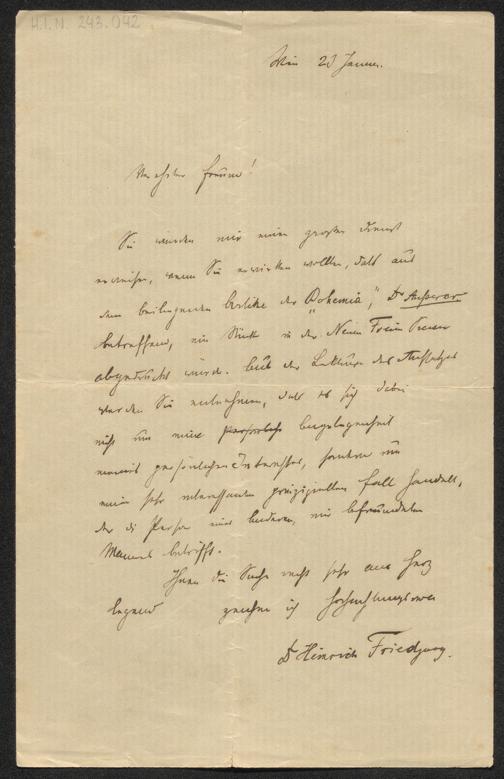 H.I.N. 243.042
Wien 23 Januar.
Verehrter Freund!
Sie würden mir einen großen Dienst
erweisen, wenn Sie erwirken wollten, daß aus
dem beiliegenden Artikel der „Bohemia“, Dr Ausserer
betreffend, ein Stück in der Neuen Freien Presse
abgedruckt würde. Aus der Lektüre des Aufsatzes
werden Sie entnehmen, daß es sich dabei
nicht um eine persönliche Angelegenheit
meines persönlichen Interesses, sondern um
einen sehr interessanten prinzipiellen Fall handelt,
der die Person eines anderen, mir befreundeten
Mannes betrifft.
Ihnen die Sache recht sehr ans Herz
legend zeichne ich hochachtungsvoll
Dr Heinrich Friedjung.